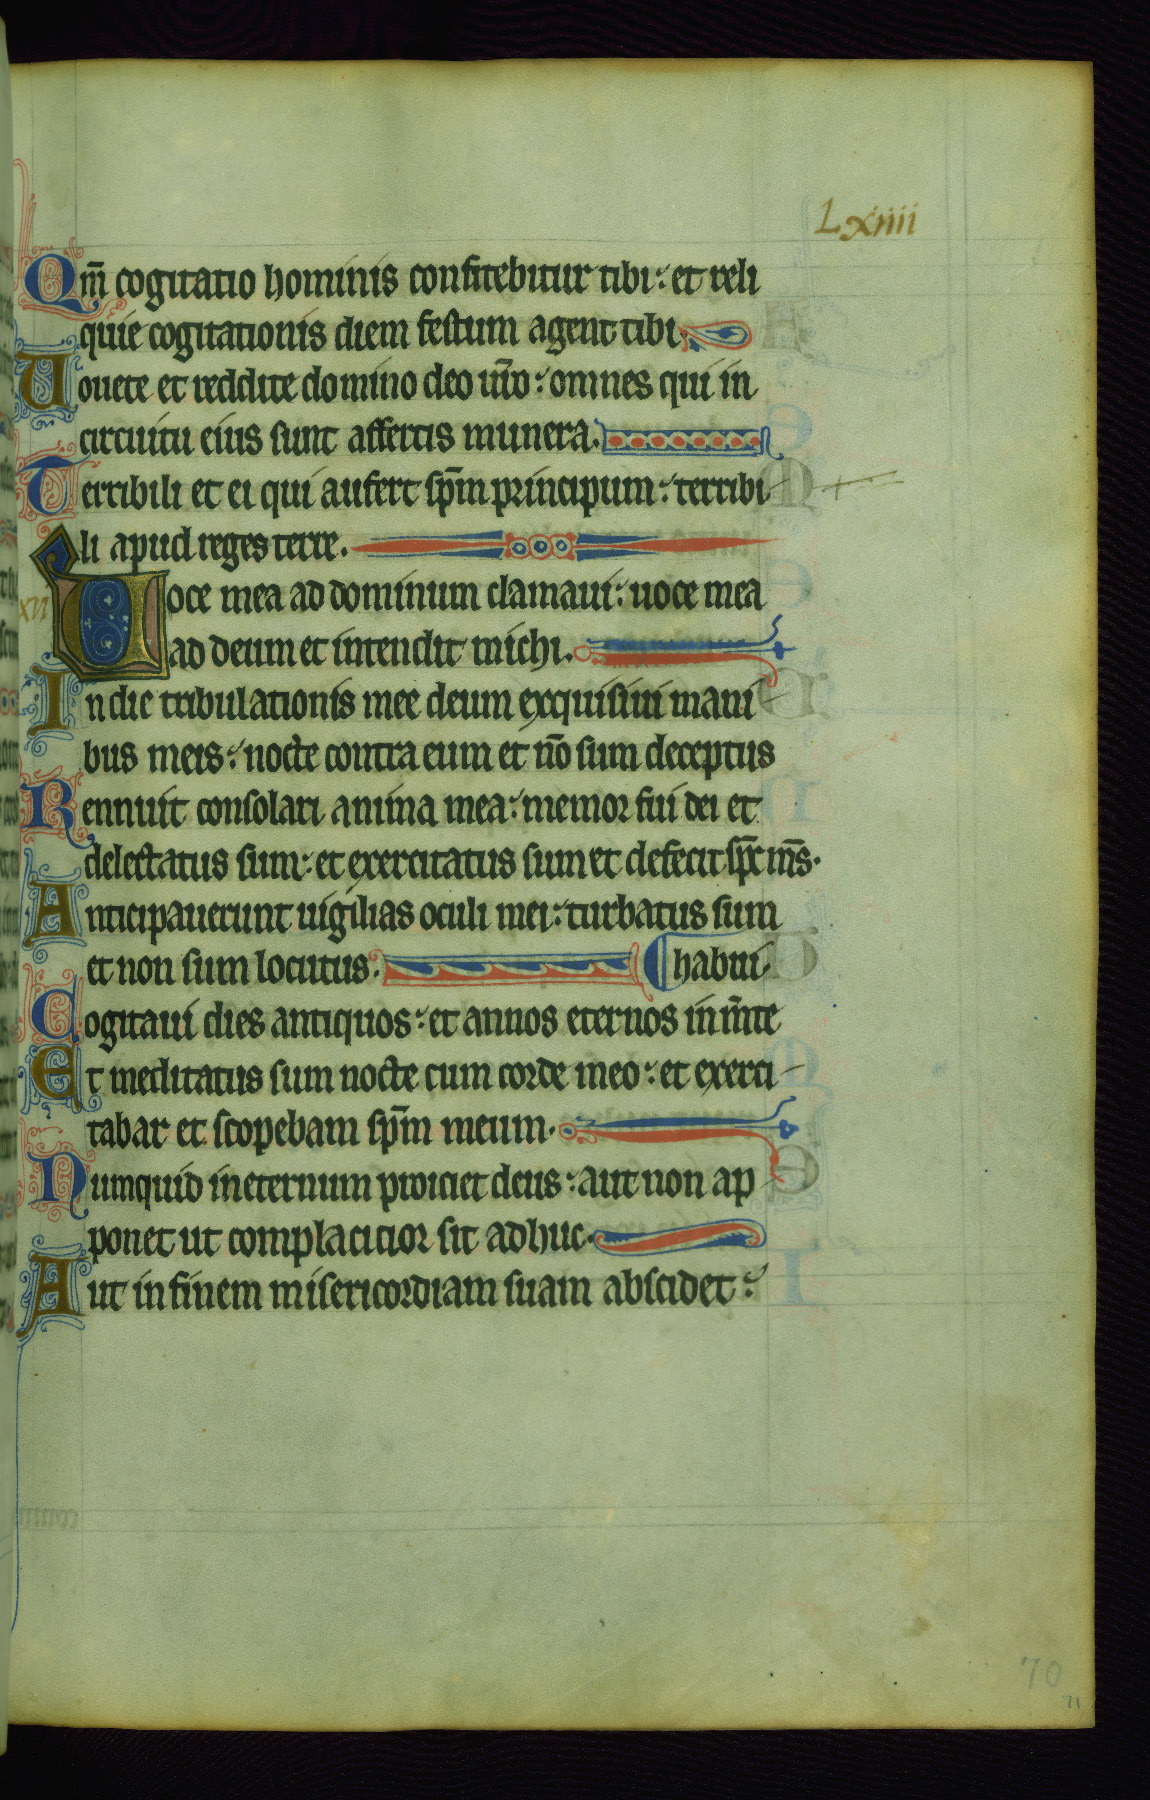 Lxiiii
Qm̄ cogitatio hominis confitebitur tibi: et reli
quie cogitationis diem festum agent tibi
Uouete et reddite domino deo ur̄o: omnes qui in
circuitu eius sunt affertis munera.
Terribili et ei qui aufert sp̄m principum: terribi
li apud reges terre.
Uoce mea ad dominum clamaui: uoce mea
ad deum et intendit michi.
In die tribulationis mee deum exquisiui mani
bus meis: nocte contra eum et nō sum deceptus
Rennuit consolari anima mea: memor fui dei et
delectatus sum: et exercitatus sum et defecit sp̄c m̄s.
Anticipauerunt uigilias oculi mei: turbatus sum
et non sum locutus. habui
Cogitaui dies antiquos: et annos eternos in m̄te
Et meditatus sum nocte cum corde meo: et exerci
tabar et scopebam sp̄m meum.
Numquid in eternum proiciet deus: aut non ap
ponet ut complacicior sit adhuc.
Aut in finem misericordiam suam abscidet:
70
71